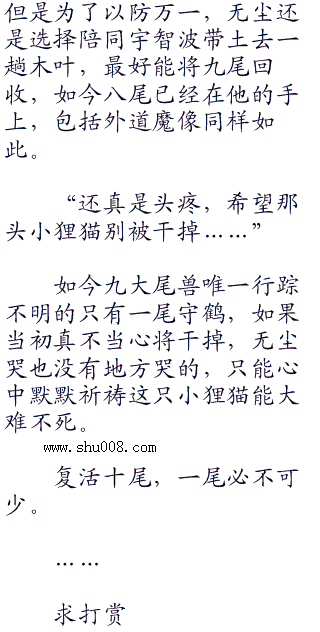 但是为了以防万一，无尘还
是选择陪同宇智波带土去一
趟木叶，最好能将九尾回
收，如今八尾已经在他的手
上，包括外道魔像同样如
此。
“还真是头疼，希望那
头小狸猫别被干掉……”
如今九大尾兽唯一行踪
不明的只有一尾守鹤，如果
当初真不当心将干掉，无尘
哭也没有地方哭的，只能心
中默默祈祷这只小狸猫能大
难不死。
www.shu008.com
复活十尾，一尾必不可
少。
……
求打赏